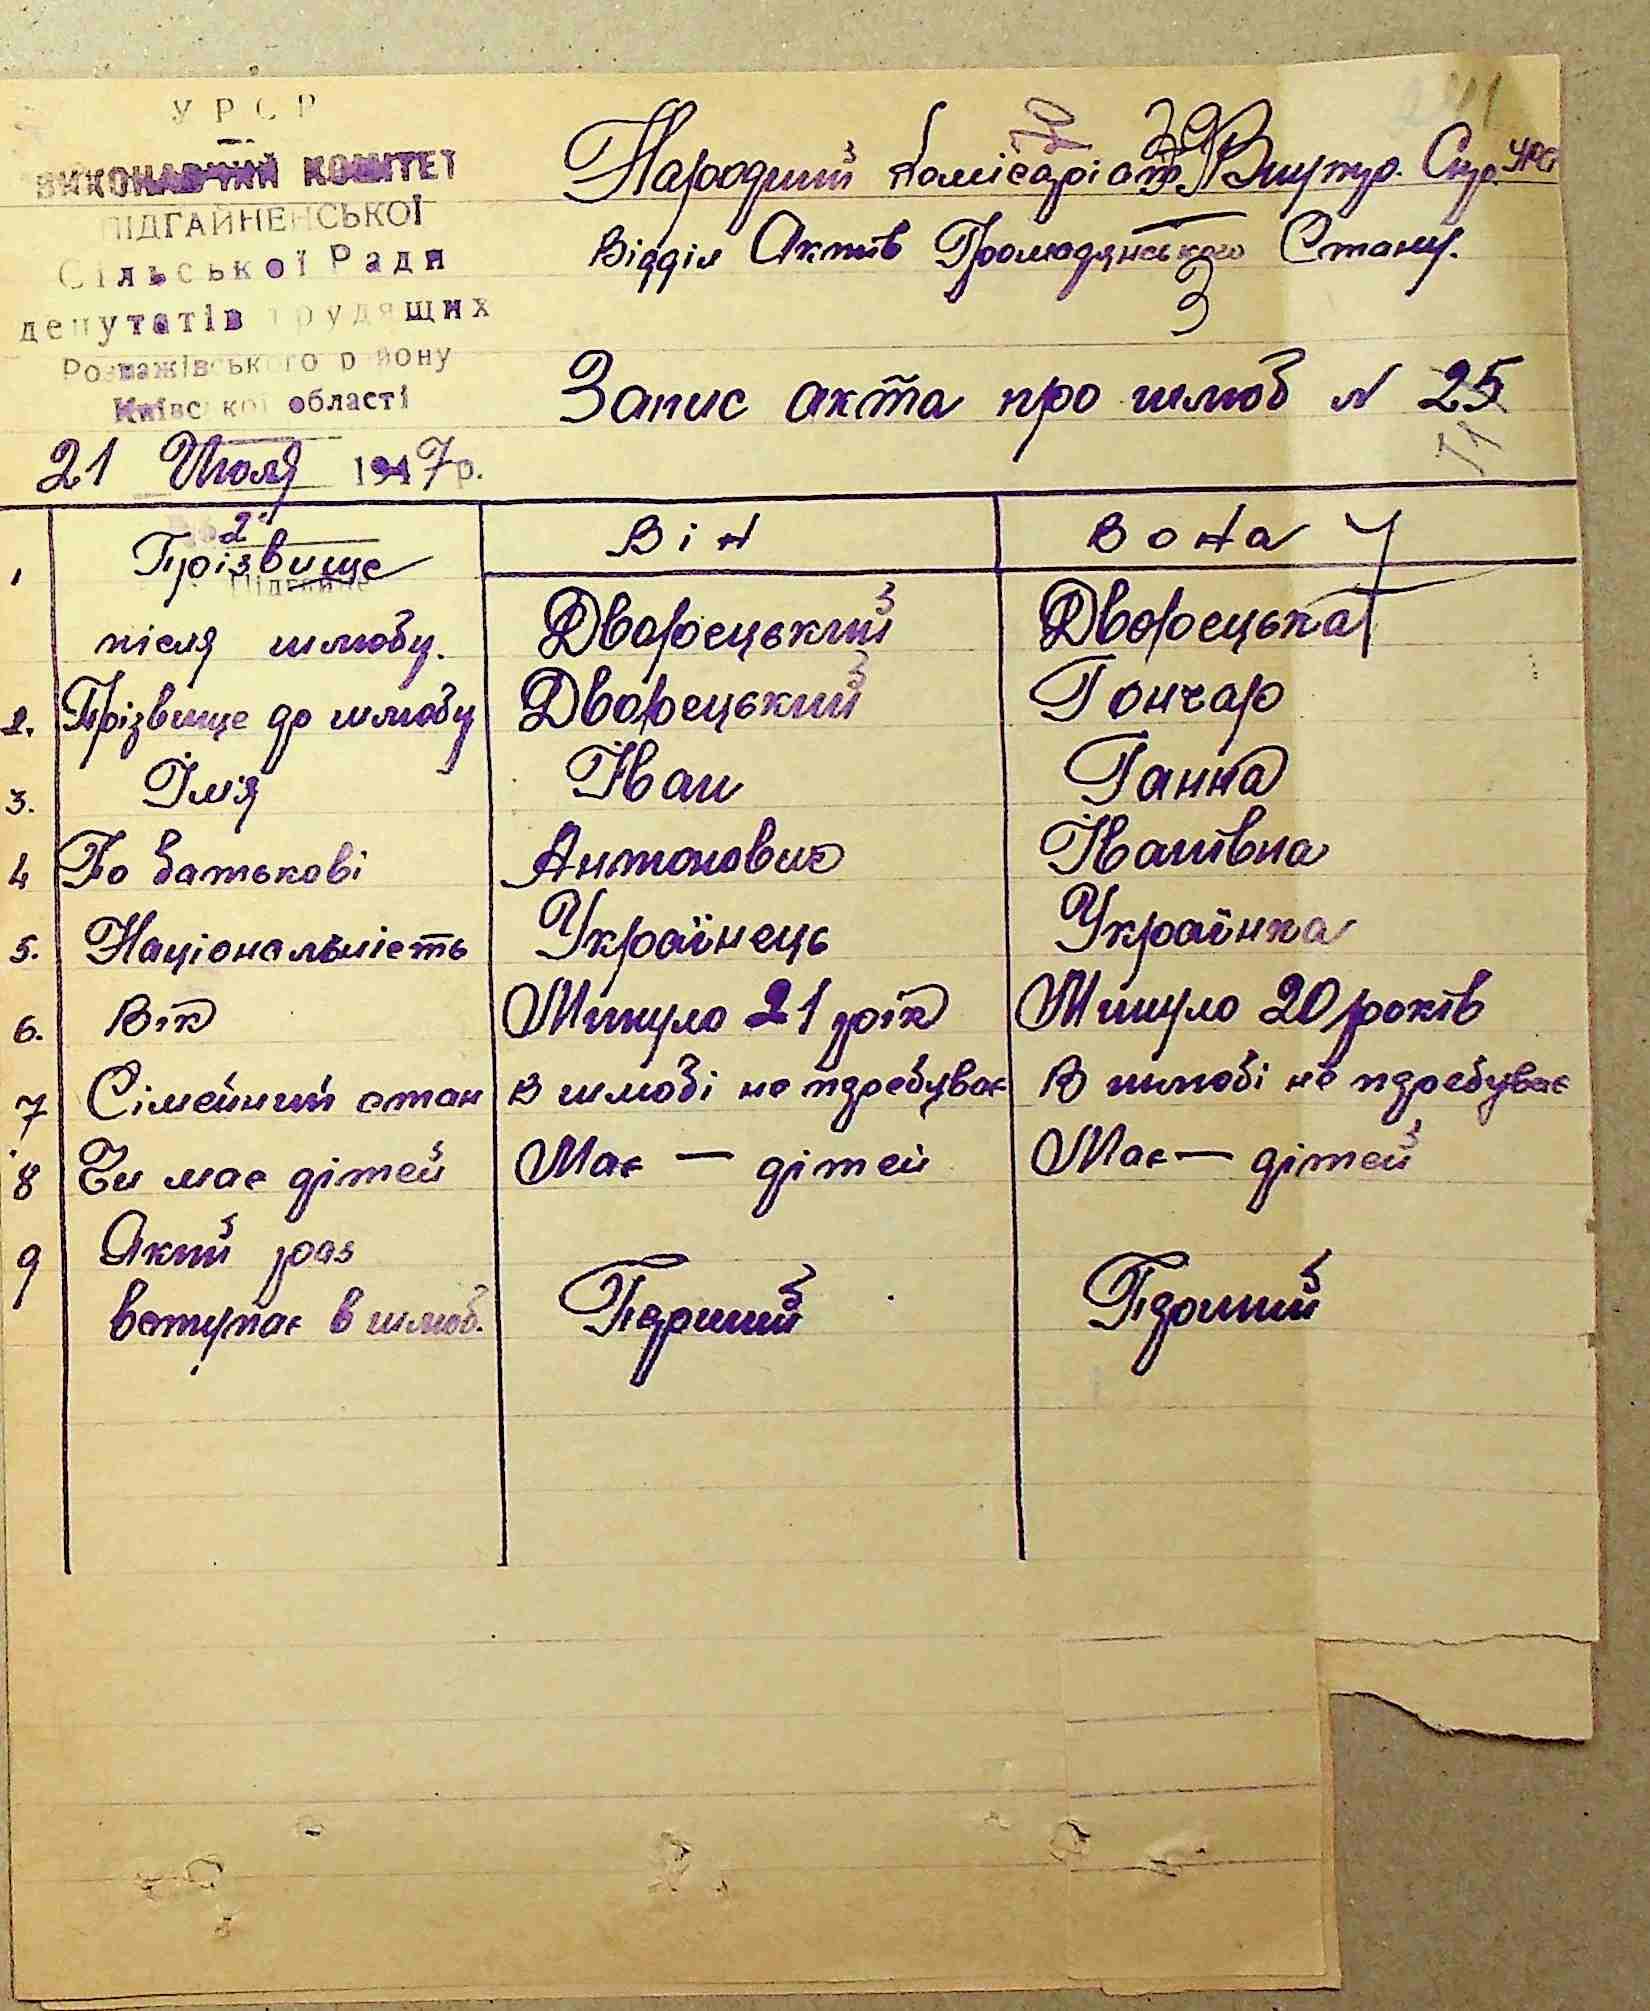 УРСР
ВИКОНАВЧИЙ КОМІТЕТ
ПІДГАЙНЕНСЬКОЇ
Сільської Ради
депутатів трудящих
Розважівського району
Київської області
21 Июля 1947 р.
Народний Комісаріат Внутр. Спр. УРСР
Відділ Актів Громадянського Стану.
Запис акта про шлюб N 25
11
Він Вона
1 Прізвище
після шлюбу. Дворецький Дворецька
2. Прізвище до шлюбу Дворецький Гончар
3. Ім'я Іван Ганна
4 По батькові Антонович Іванівна
5. Національність Українець Українка
6. Вік Минуло 21 рік Минуло 20 років
7 Сімейний стан В шлюбі не пдребуває В шлюбі не пдребуває
8 Чи має дітей Має — дітей Має — дітей
9 Який раз
вступає в шлюб. Перший Перший